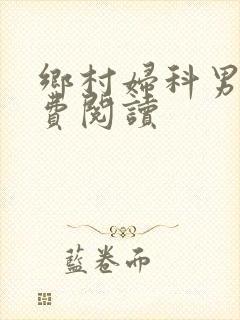 鄉村婦科男
費閱讀
藍卷而